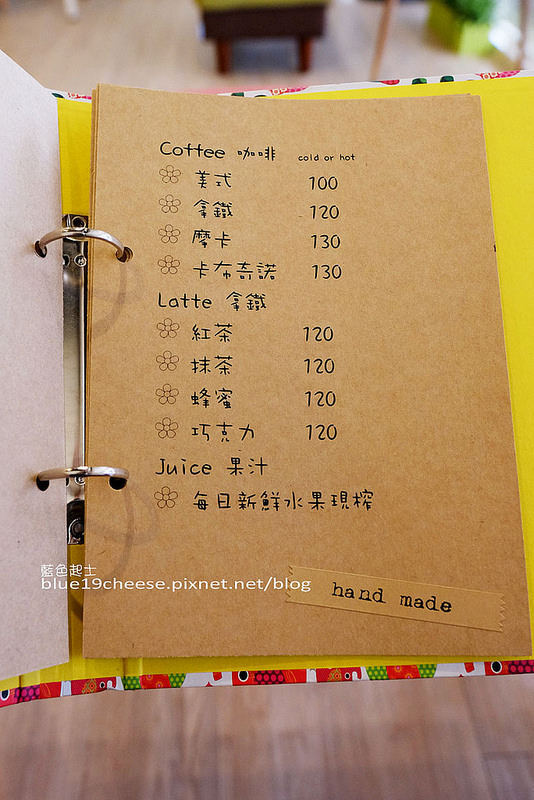 Coffee 咖啡 cold or hot
美式 100
拿鐵 120
摩卡 130
卡布奇諾 130
Latte 拿鐵
紅茶 120
抹茶 120
蜂蜜 120
巧克力 120
Juice 果汁
每日新鮮水果現榨
藍色起士
blue19cheese.pixnet.net/blog
hand made